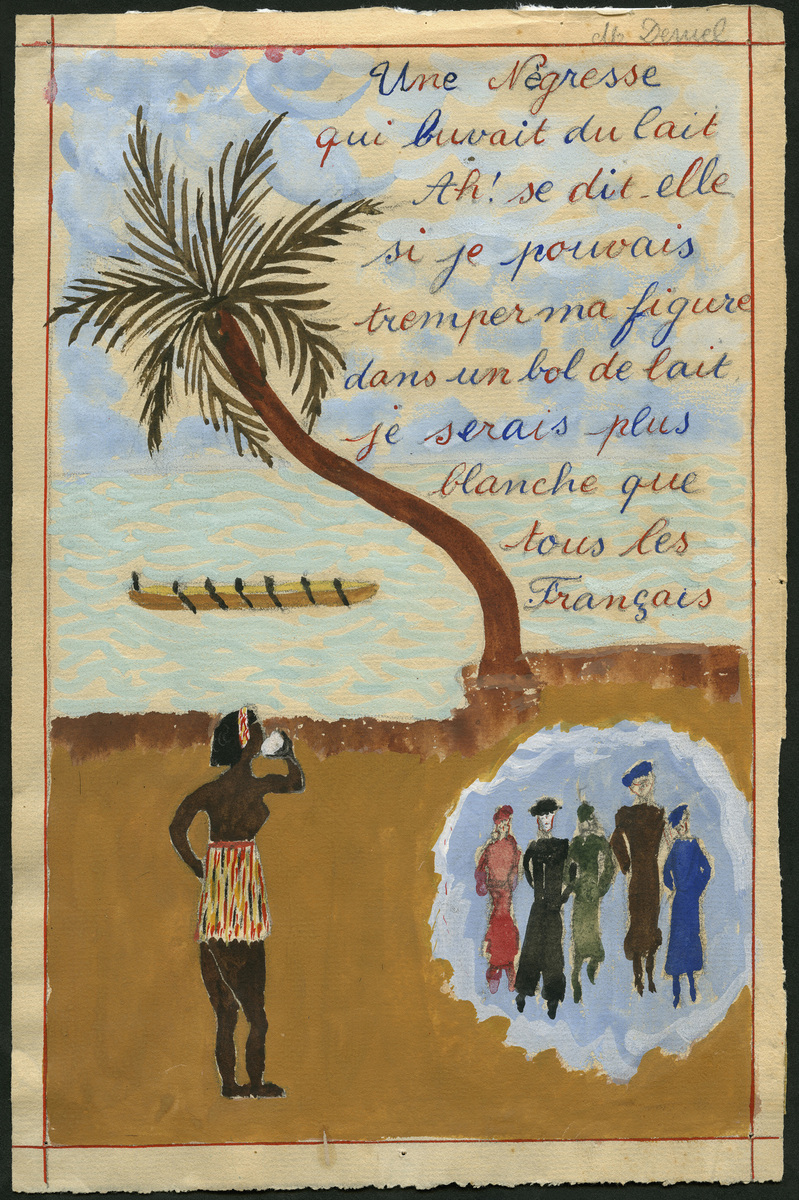 Une Négresse
qui buvait du lait
Ah! se dit-elle
si je pouvais
tremper ma figure
dans un bol de lait
je serais plus
blanche que
tous les
Français